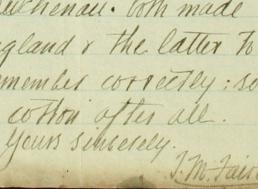 both made
ngland & the latter to
emember correctly; so
cotton after all.
Yours sincerely.
J. M. Fair